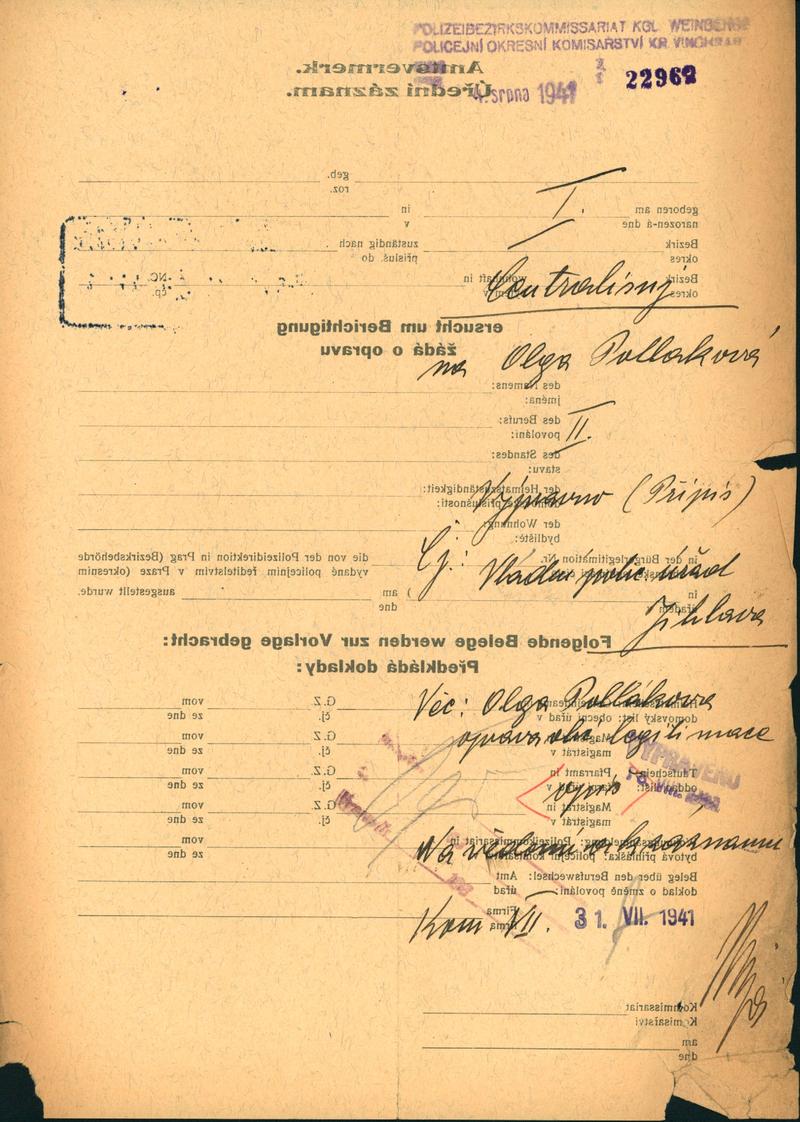 POLIZEIBEZIRKSKOMMISSARIAT KGL. WEINBERGE
POLICEJNÍ OKRESNÍ KOMISAŘSTVÍ KR. VINOHRADY
Amtsvermerk.
Úřední záznam.
4. srpna 1941
22962
geb.
roz.
I.
geboren am in
narozen-á dne v
Bezirk zuständig nach
okres příslus. do
Bezirk wohnhaft in NC.
okres čp.
Centralisuj
ersucht um Berichtigung
žádá o opravu
na Olga Pollaková
des Namens:
jména:
des Berufs:
povolání:
II.
des Standes:
stavu:
der Heimatszuständigkeit:
domovské příslušnosti:
Vypraveno (Přípis)
der Wohnung:
bydliště:
in der Bürgerlegitimation Nr. die von der Polizeidirektion in Prag (Bezirksbehörde
vydané policejním ředitelstvím v Praze (okresním
Čj.: Vládní polic. úřad
in am ausgestellt wurde.
úřadem dne
Jihlava
Folgende Belege werden zur Vorlage gebracht:
Předkládá doklady:
Věc: Olga Pollákova
G.Z. vom
domovský list: obecní úřad v čj. ze dne
oprava obč. legitimace
Magistrat in G.Z. vom
magistrát v čj. ze dne
VYPRAVENO
Taufschein: Pfarramt in G.Z. vom
oddací list: farní úřad v čj. ze dne
opis
Magistrat in G.Z. vom
magistrát v čj. ze dne
Na vědomí a k záznamu
Polizeikommissariat in vom
bytová přihláška: policejní komisař. ze dne
Beleg über den Berufswechsel: Amt
doklad o změně povolání: úřad
Firma
firma
Kom VII. 31. VII. 1941
Kommissariat
Komisařství
am
dne